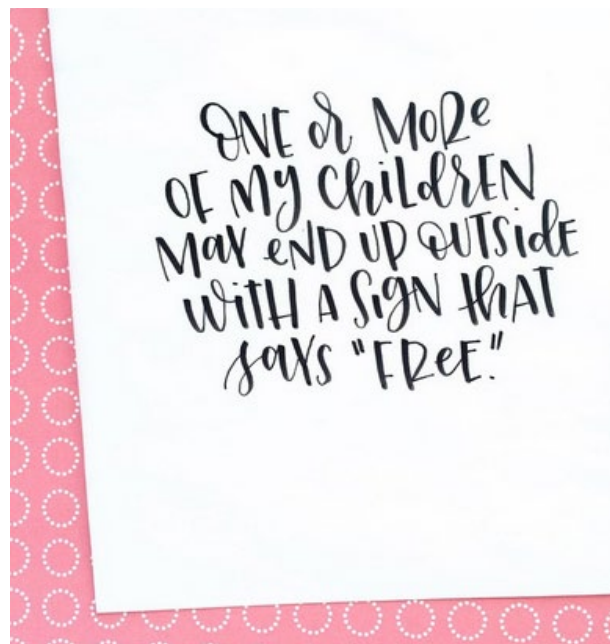 ONE or MORe
OF MY ChiLdrEN
MaY eND UP OUTSidE
WiTH A SiGN thAT
saYs "FReE."